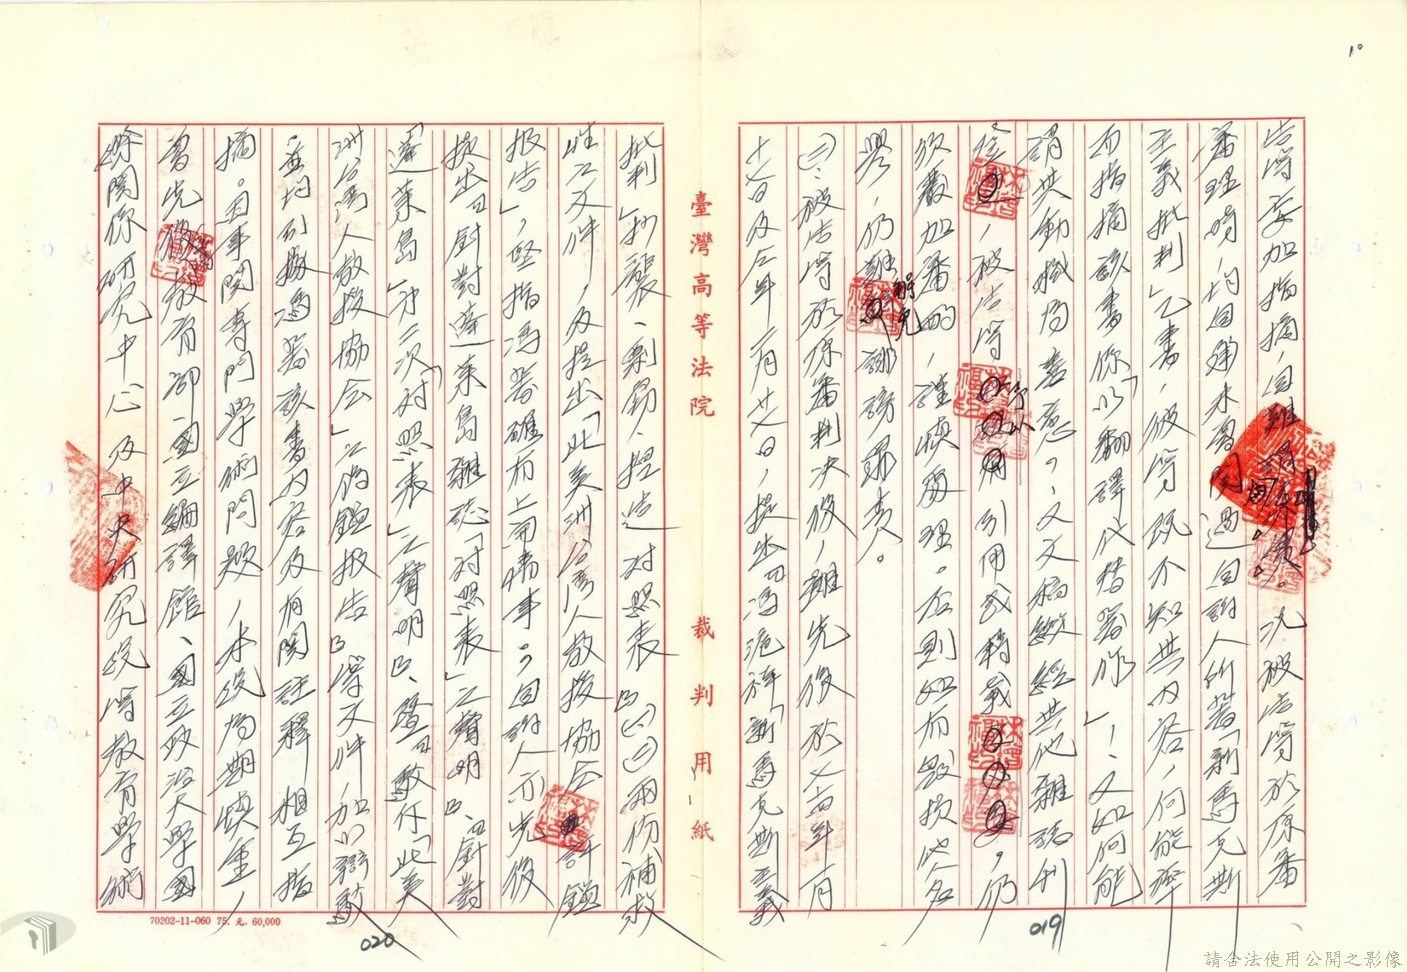 10
告等妄加指摘，自難解免責。況被告等於原審
審理時，均自陳未看過自訴人所著「新馬克斯
主義批判」乙書，彼等既不知其內容，何能率
而指摘該書係以「翻譯代替著作」！又如何能
謂其動機為善意。又文稿縱經其他雜誌刊
登，被告等予以引用或轉載，仍
須嚴加審酌，謹慎處理。否則如而毀損他人名
譽，仍難解免誹謗罪責。
㈢、被告等於原審判決後，雖先後於七十五年一月
十七日及同年一月廿七日，提出「馮滬祥『新馬克斯主義
臺灣高等法院
裁判用紙
批判』抄襲、剽竊、捏造對照表」㈠㈡兩份補充
性之文件，及提出「北美洲台灣人教授協會評鑑
報告」，堅指馮著確有上開情事。自訴人亦先後
提出「針對蓬萊島雜誌『對照表』之聲明」、「針對
『蓬萊島』第二次『對照表』之聲明」、暨「駁斥『北美
洲台灣人教授協會』之偽鑑報告」等文件，加以辯駁
並均引據馮著該書內容及有關註釋相互指
摘。因事關專門學術問題，本院為期慎重，
曾先後檢送教育部、國立編譯館、國立政治大學國
際關係研究中心及中央研究院等教育學術
70202-11-060 75. 元. 60,000
020
019
請合法使用公開之影像